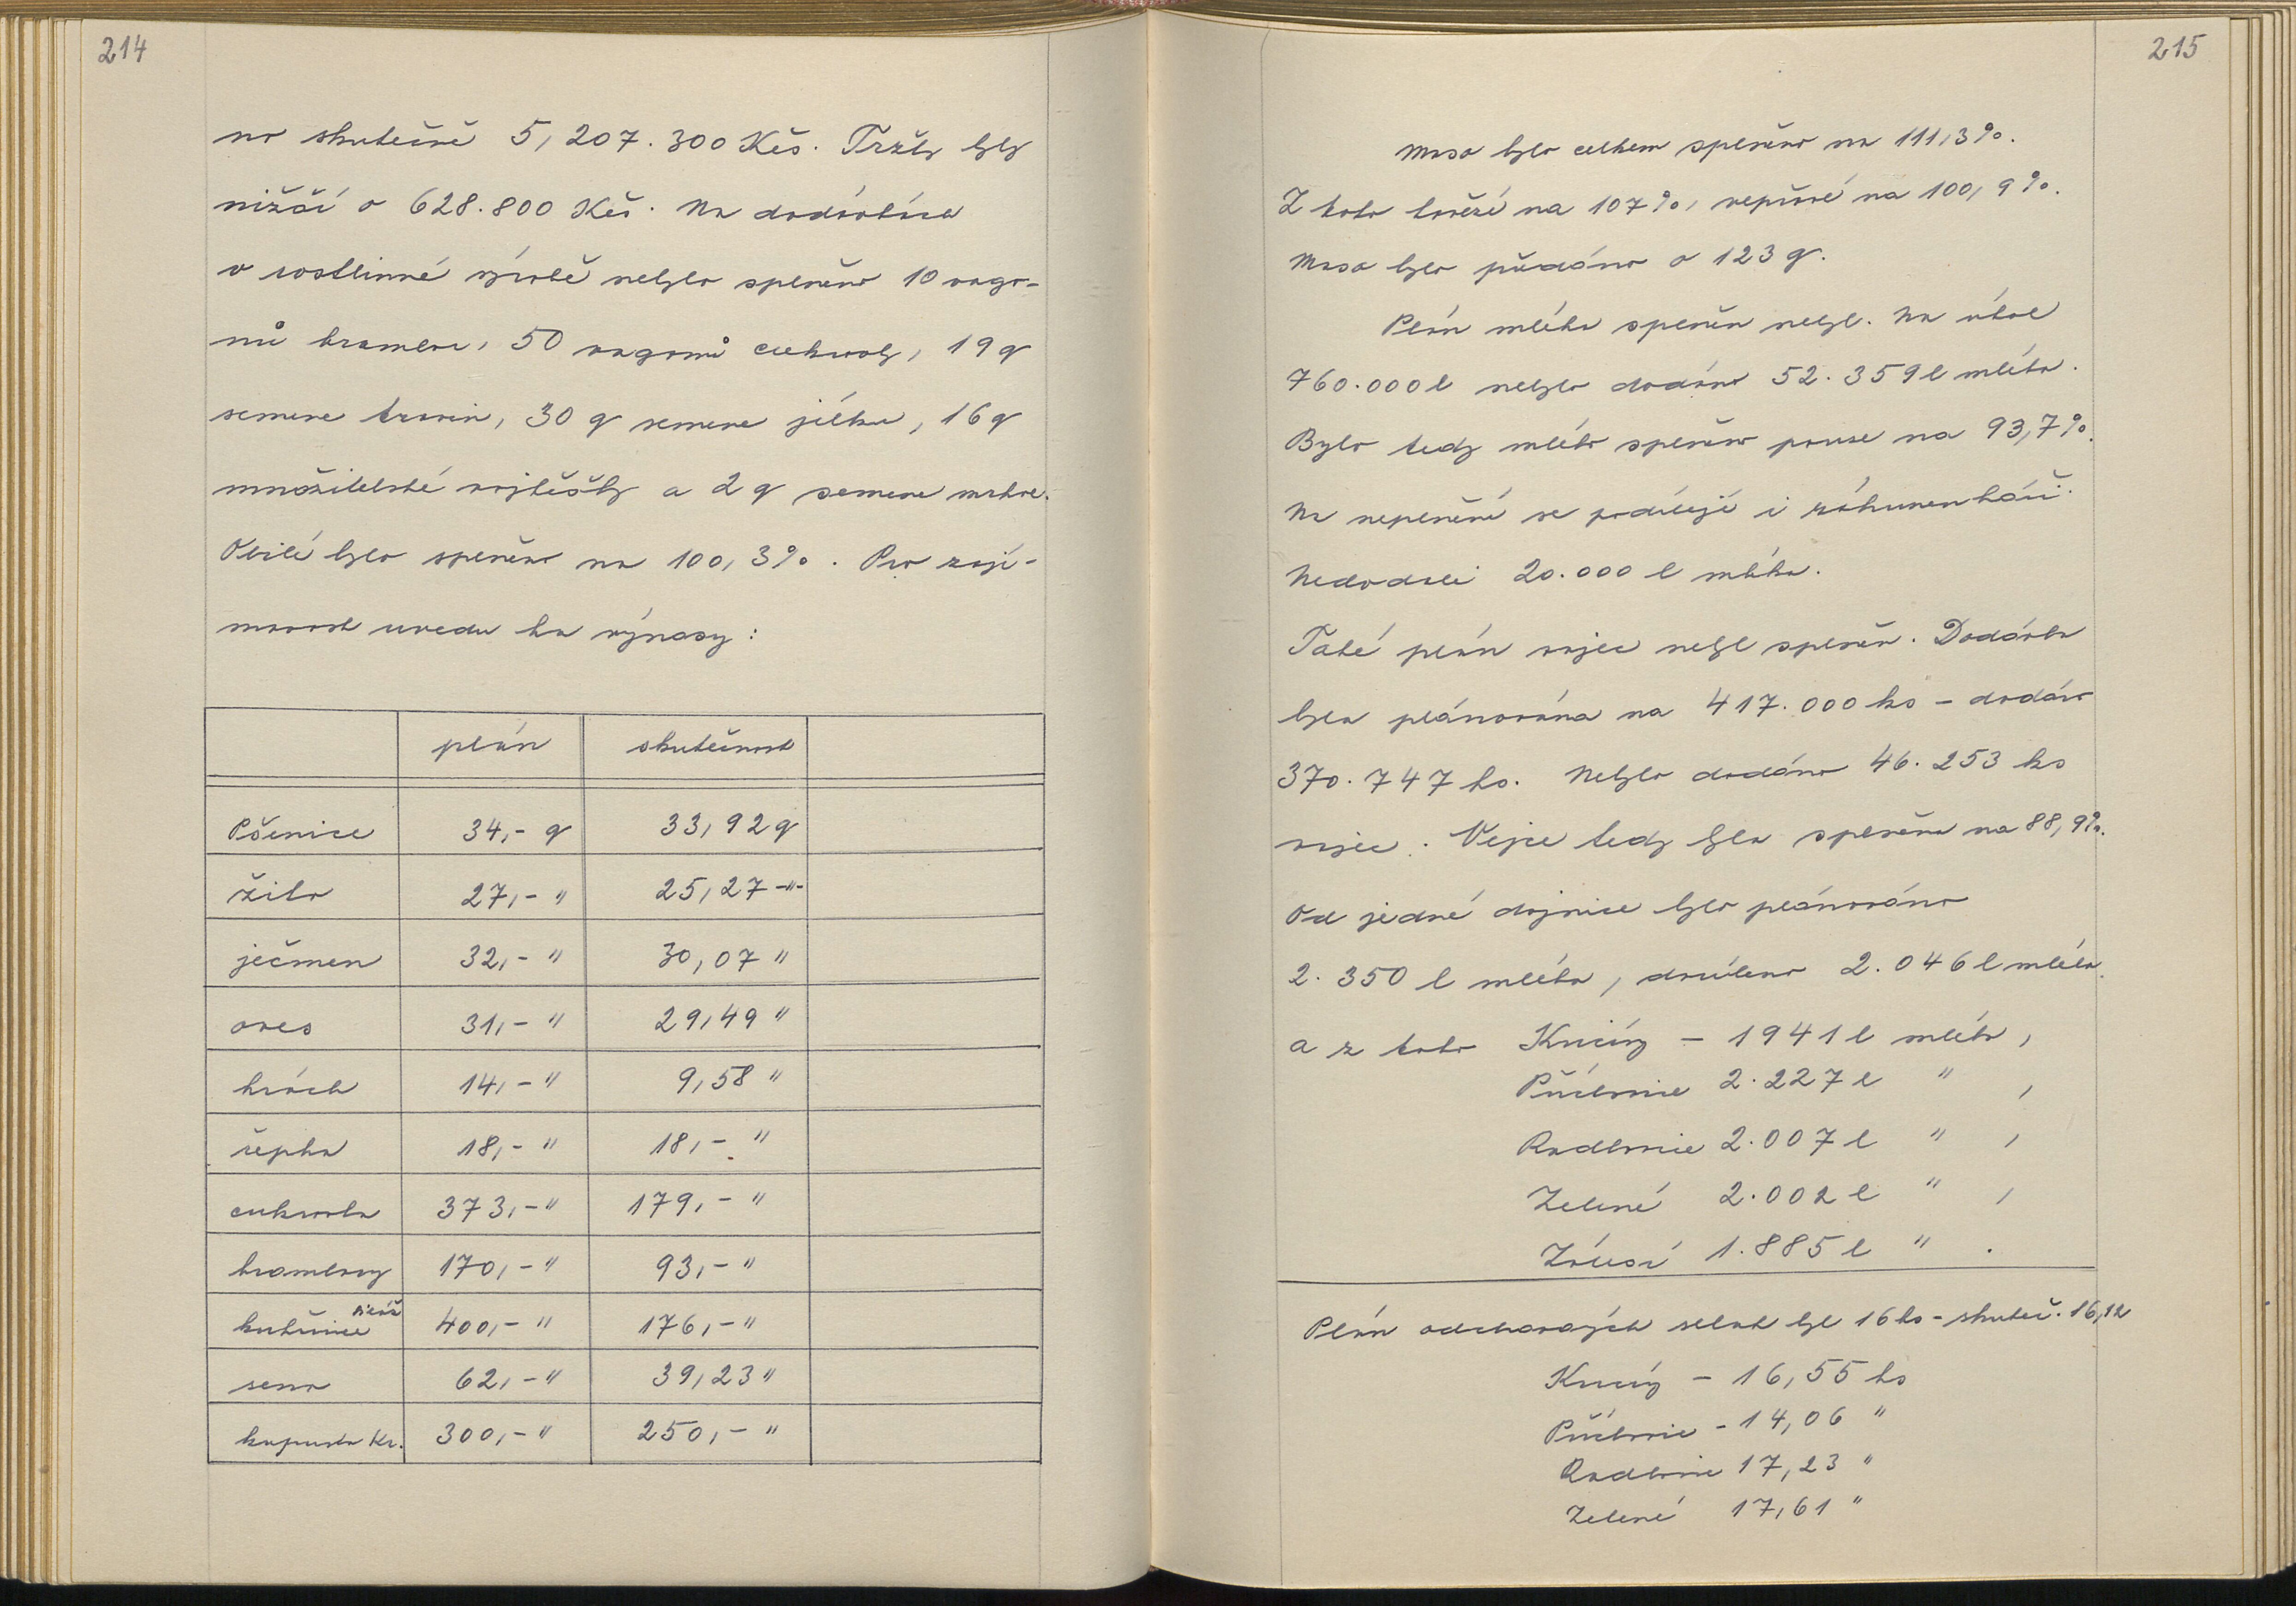 214
no skutečně 5,207.300 Kčs. Tržby byly
nižší o 628.800 Kčs. Na dodávkách
v rostlinné výrobě nebylo splněno 10 vago-
nů brambor, 50 vagonů cukrovky, 19 q
semene travin, 30 q semene jílku, 16 q
množitelské vojtěšky a 2 q semene mrkve.
Obilí bylo splněno na 100,3%. Pro zají-
mavost uvedu ha výnosy:
plán skutečnost
Pšenice 34,- q 33,92 q
žito 27,- " 25,27 -"-
ječmen 32,- " 30,07 "
oves 31,- " 29,49 "
hrách 14,- " 9,58 "
řepka 18,- " 18,- "
cukrovka 373,- " 179,- "
brambory 170,- " 93,- "
kukuřice siláž 400,- " 176,- "
seno 62,- " 39,23 "
kapusta kr. 300,- " 250,- "
215
Maso bylo celkem splněno na 111,3%.
Z toho hovězí na 107%, vepřové na 100,9%.
Masa bylo předáno o 123 q.
Plán mléka splněn nebyl. Na úkol
760.000 l nebylo dodáno 52.359 l mléka.
Bylo tedy mléko splněno pouze na 93,7%.
Na neplnění se podílejí i záhumenkáři.
Nedodali 20.000 l mléka.
Také plán vajec nebyl splněn. Dodávka
byla plánována na 417.000 ks - dodáno
370.747 ks. Nebylo dodáno 46.253 ks
vajec. Vejce tedy byla splněna na 88,9%.
Od jedné dojnice bylo plánováno
2.350 l mléka, docíleno 2.046 l mléka.
a z toho Kručiny - 1941 l mléka,
Příchvoje 2.227 l " ,
Radlovice 2.007 l " ,
Zelené 2.002 l " ,
Zálesí 1.885 l " .
Plán odchovaných selat byl 16 ks - skuteč. 16,12
- 16,55 ks
- 14,06 "
17,23 "
Zelené 17,61 "